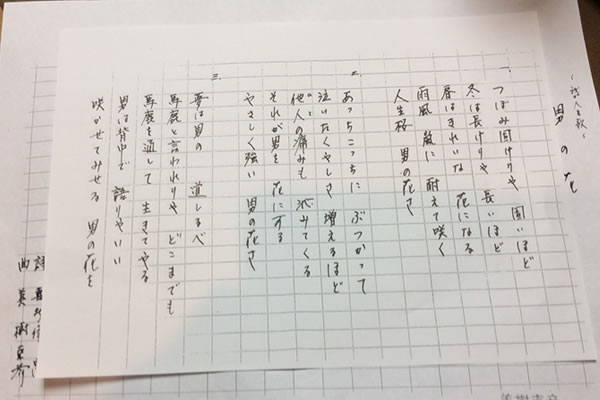 男の花
一、
つぼみ固けりゃ 固いほど
冬は長けりゃ 長いほど
春はきれいな 花になる
雨風 嵐に 耐えて咲く
人生桜 男の花さ
二、
あっちこっちに ぶつかって
泣いたくやしさ 増えるほど
他人の痛みも 沁みてくる
それが男を 花にする
やさしく強い 男の花さ
三、
夢は男の 道しるべ
馬鹿と言われりゃ どこまでも
馬鹿を通して 生きてやる
男は背中で 語りゃいい
咲かせてみせる 男の花を
詩
曲 美樹